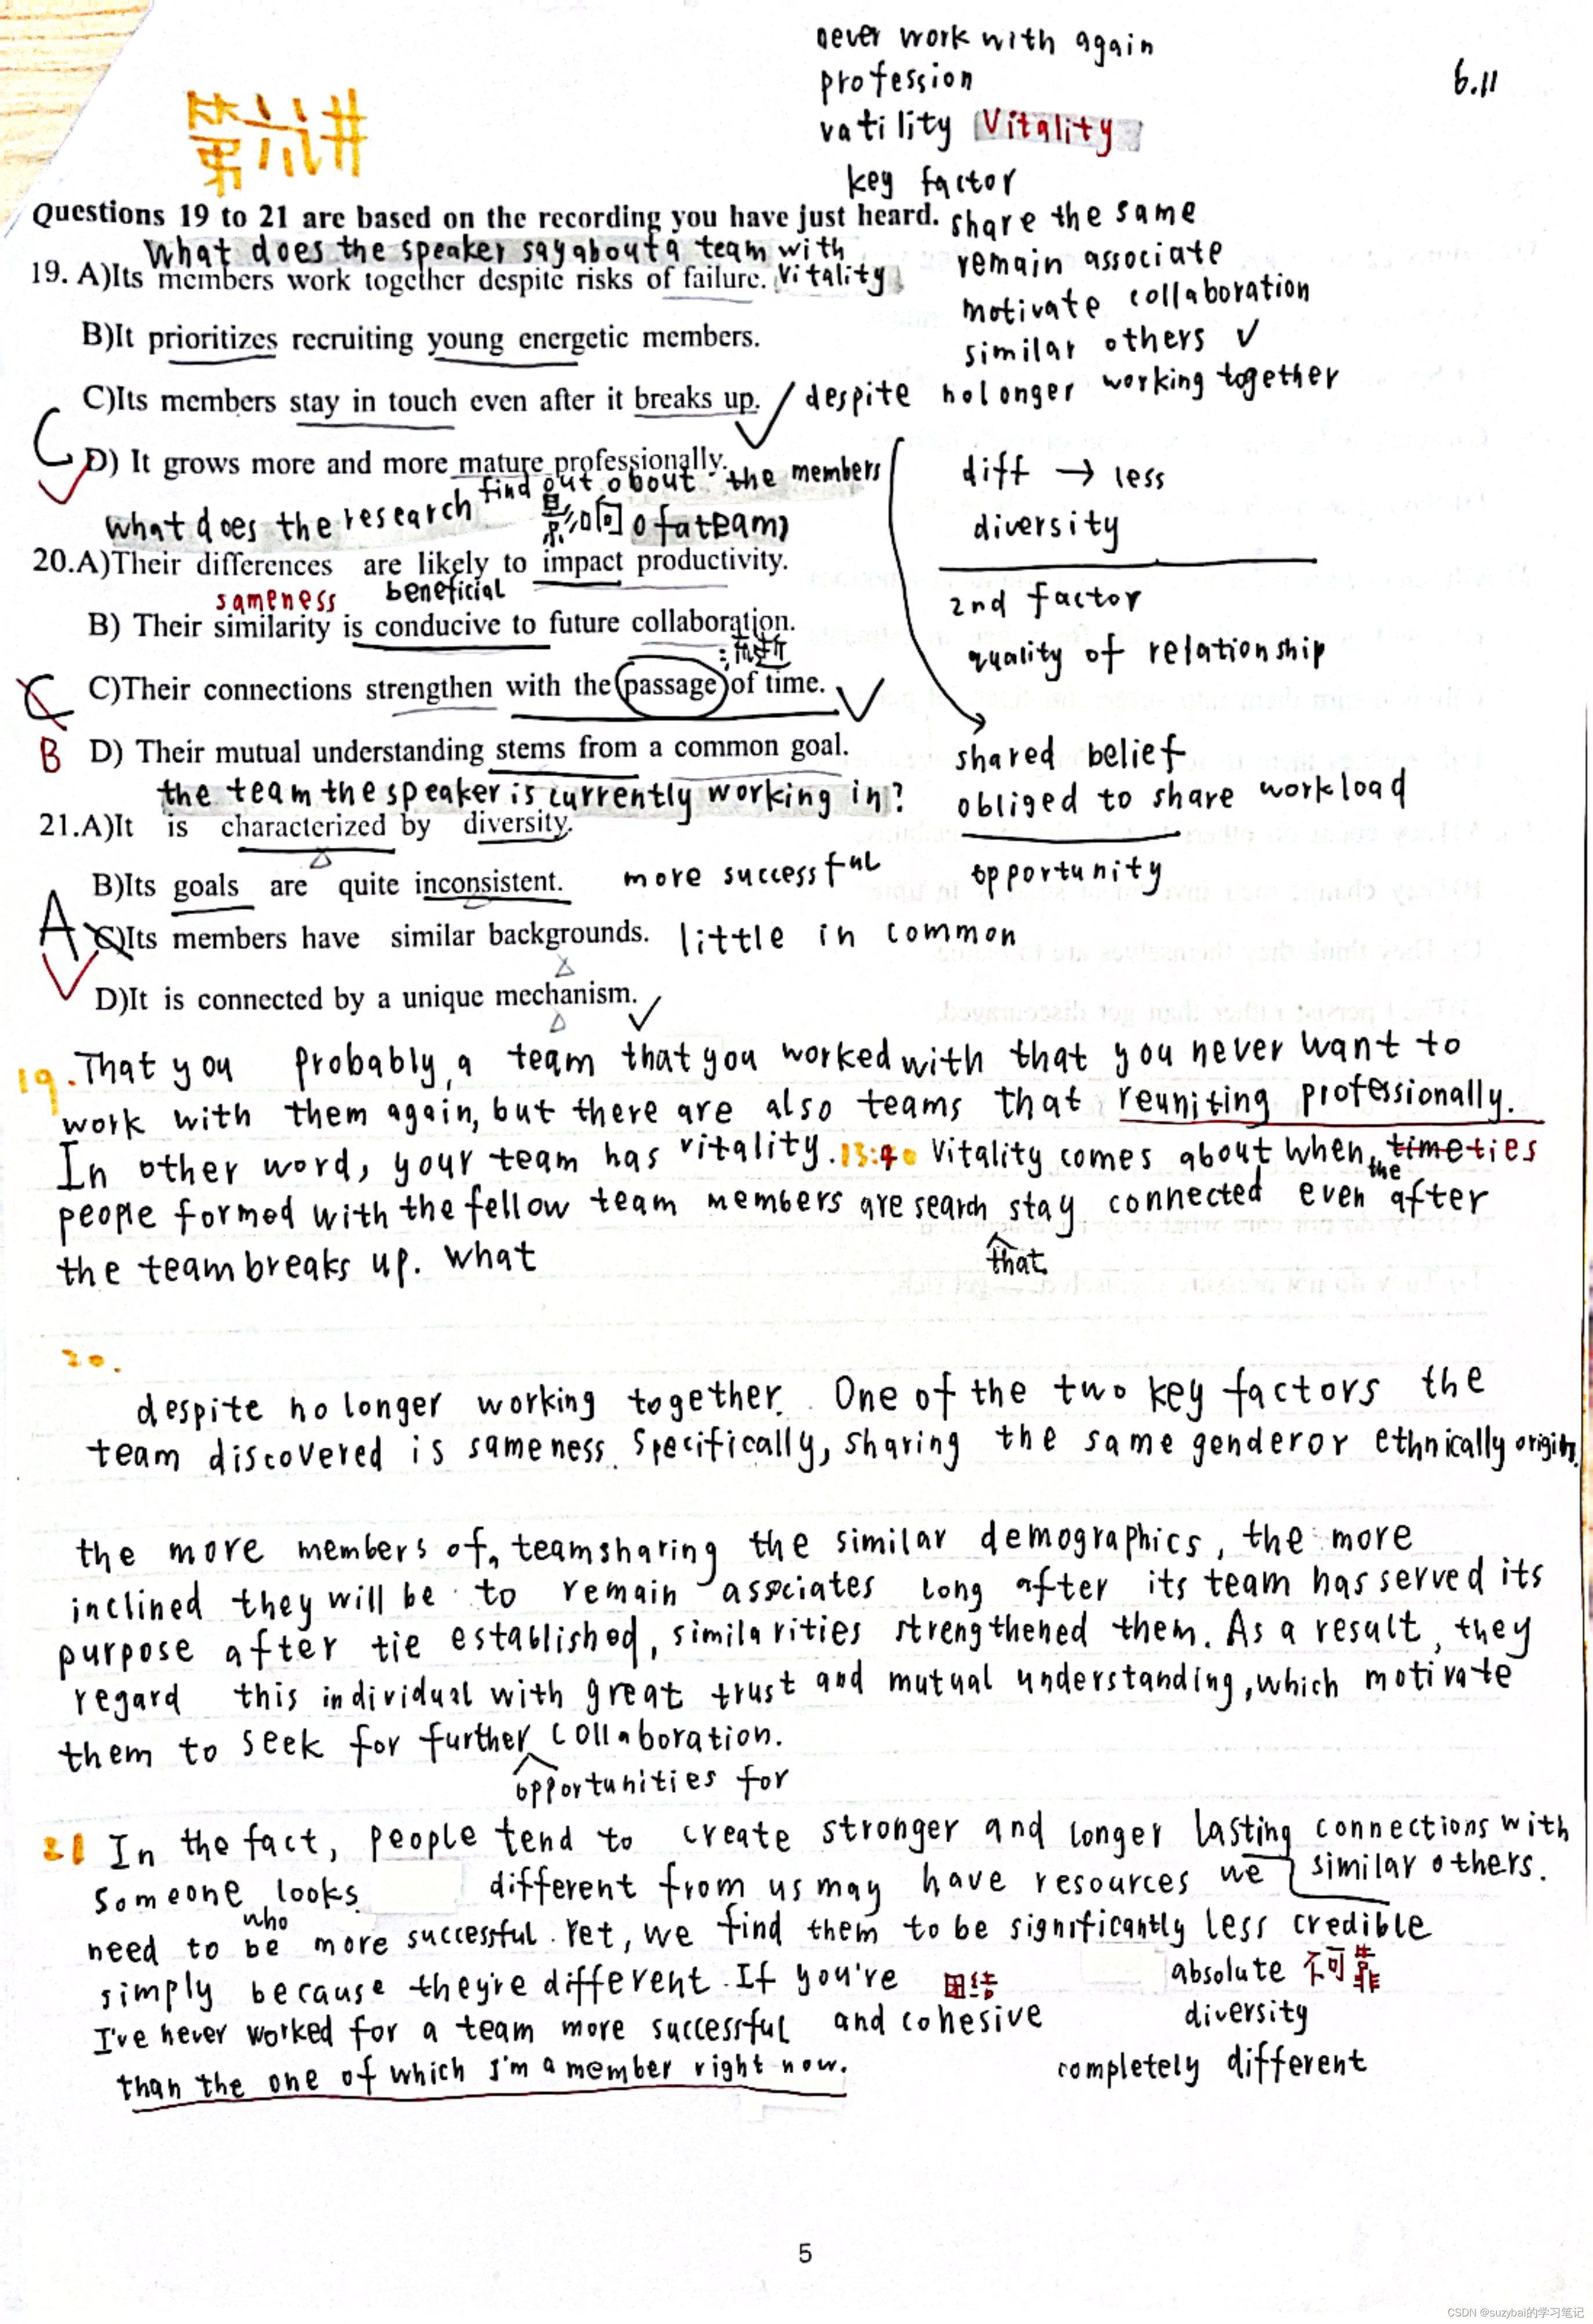 never work with again
6.11
profession
第六讲
vatility Vitality
key factor
Questions 19 to 21 are based on the recording you have just heard. share the same
What does the speaker say about a team with vitality
remain associate
19. A)Its members work together despite risks of failure.
motivate collaboration
B)It prioritizes recruiting young energetic members.
similar others ✓
C)Its members stay in touch even after it breaks up. / despite no longer working together
C
D) It grows more and more mature professionally.
diff → less
what does the research find out about the members of a team)
影响
diversity
20.A)Their differences are likely to impact productivity.
sameness beneficial
2nd factor
B) Their similarity is conducive to future collaboration.
quality of relationship
C C)Their connections strengthen with the passage of time.
B D) Their mutual understanding stems from a common goal.
shared belief
the team the speaker is currently working in?
obliged to share workload
21.A)It is characterized by diversity.
B)Its goals are quite inconsistent. more successful
opportunity
A C)Its members have similar backgrounds. little in common
D)It is connected by a unique mechanism.
19. That you probably a team that you worked with that you never want to
work with them again, but there are also teams that reuniting professionally.
In other word, your team has vitality. 13:40 Vitality comes about when the time ties
people formed with the fellow team members are search stay connected even after
that
the team breaks up. What
20.
despite no longer working together. One of the two key factors the
team discovered is sameness. Specifically, sharing the same gender or ethnically origins.
the more members of team sharing the similar demographics, the more
inclined they will be to remain associates long after its team has served its
purpose after tie established, similarities strengthened them. As a result, they
regard this individual with great trust and mutual understanding, which motivate
them to seek for further collaboration.
opportunities for
21 In the fact, people tend to create stronger and longer lasting connections with
similar others.
someone looks different from us may have resources we
who
need to be more successful. Yet, we find them to be significantly less credible
simply because they're different. If you're 团结 absolute 不可靠
I've never worked for a team more successful and cohesive diversity
than the one of which I'm a member right now. completely different
5
CSDN @suzybai的学习笔记